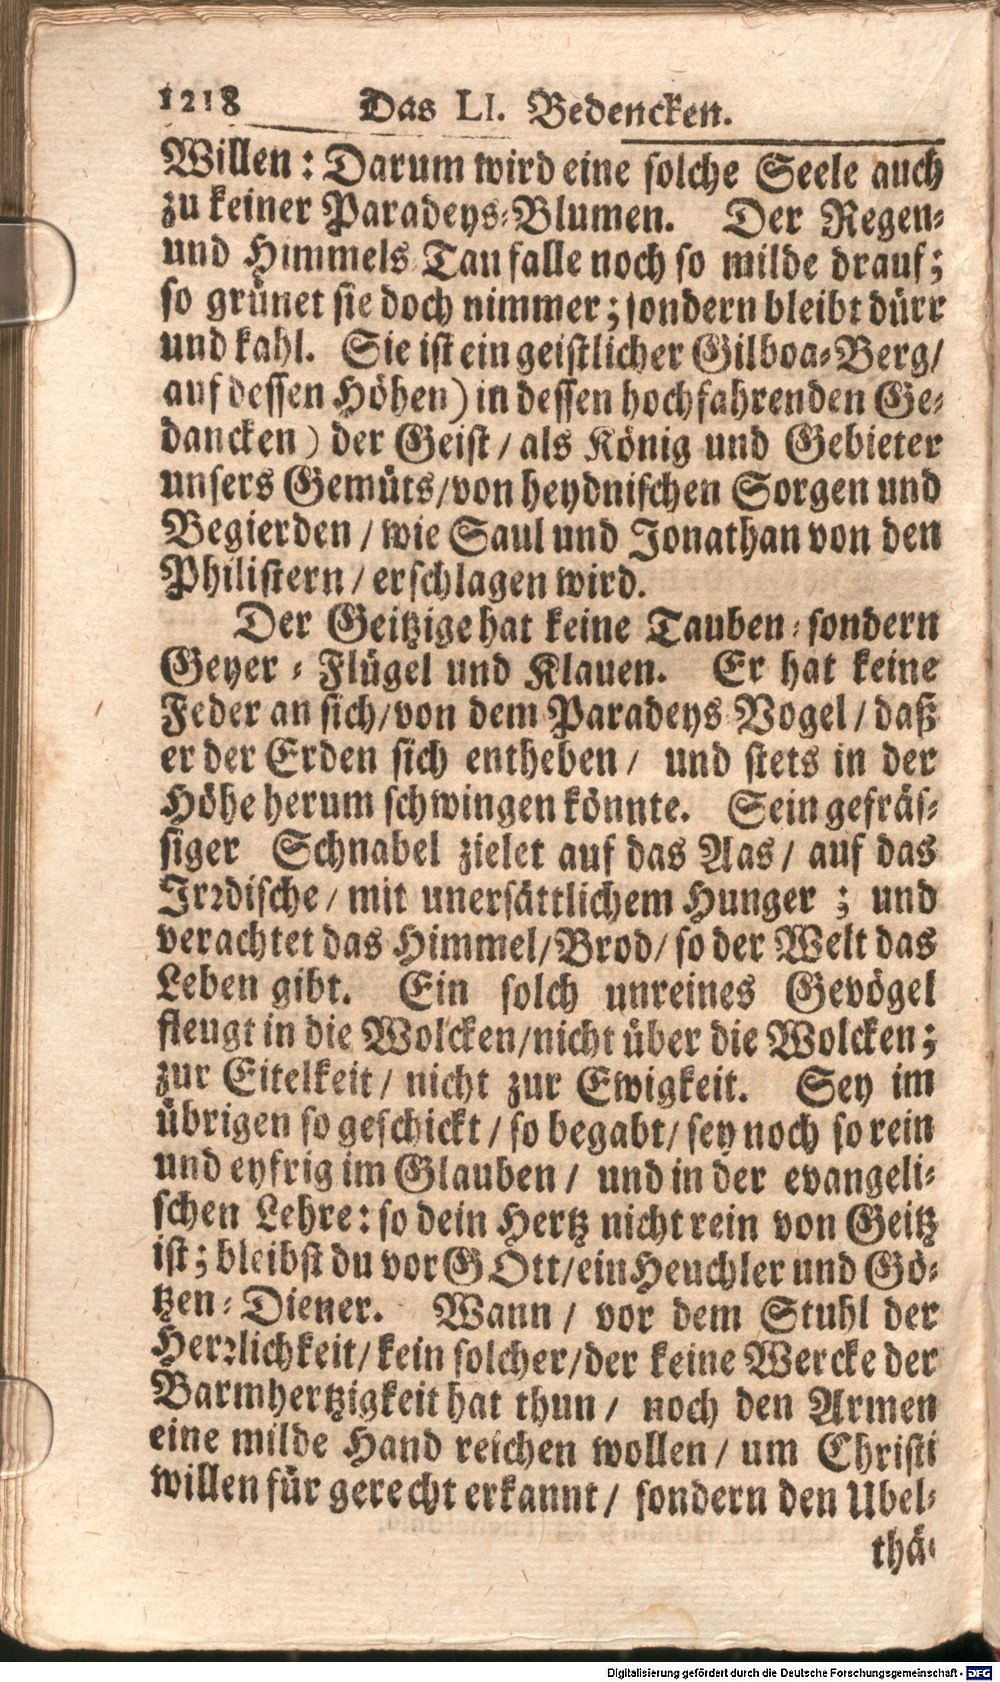 1218 Das LI. Bedencken.
Willen: Darum wird eine solche Seele auch
zu keiner Paradeys-Blumen. Der Regen-
und Himmels Tau falle noch so milde drauf;
so grünet sie doch nimmer; sondern bleibt dürr
und kahl. Sie ist ein geistlicher Gilboa-Berg/
auf dessen Höhen) in dessen hochfahrenden Ge-
dancken) der Geist/ als König und Gebieter
unsers Gemüts/ von heydnischen Sorgen und
Begierden/ wie Saul und Jonathan von den
Philistern/ erschlagen wird.
Der Geitzige hat keine Tauben- sondern
Geyer-Flügel und Klauen. Er hat keine
Feder an sich/ von dem Paradeys-Vogel/ daß
er der Erden sich entheben/ und stets in der
Höhe herum schwingen könnte. Sein gefräs-
siger Schnabel zielet auf das Aas/ auf das
Irrdische/ mit unersättlichem Hunger; und
verachtet das Himmel/Brod/ so der Welt das
Leben gibt. Ein solch unreines Gevögel
fleugt in die Wolcken/ nicht über die Wolcken;
zur Eitelkeit/ nicht zur Ewigkeit. Sey im
übrigen so geschickt/ so begabt/ sey noch so rein
und eyfrig im Glauben/ und in der evangeli-
schen Lehre: so dein Hertz nicht rein von Geitz
ist; bleibst du vor GOtt/ ein Heuchler und Gö-
tzen-Diener. Wann/ vor dem Stuhl der
Herrlichkeit/ kein solcher/ der keine Wercke der
Barmhertzigkeit hat thun/ noch den Armen
eine milde Hand reichen wollen/ um Christi
willen für gerecht erkannt/ sondern den Ubel-
thä-
Digitalisierung gefördert durch die Deutsche Forschungsgemeinschaft - DFG